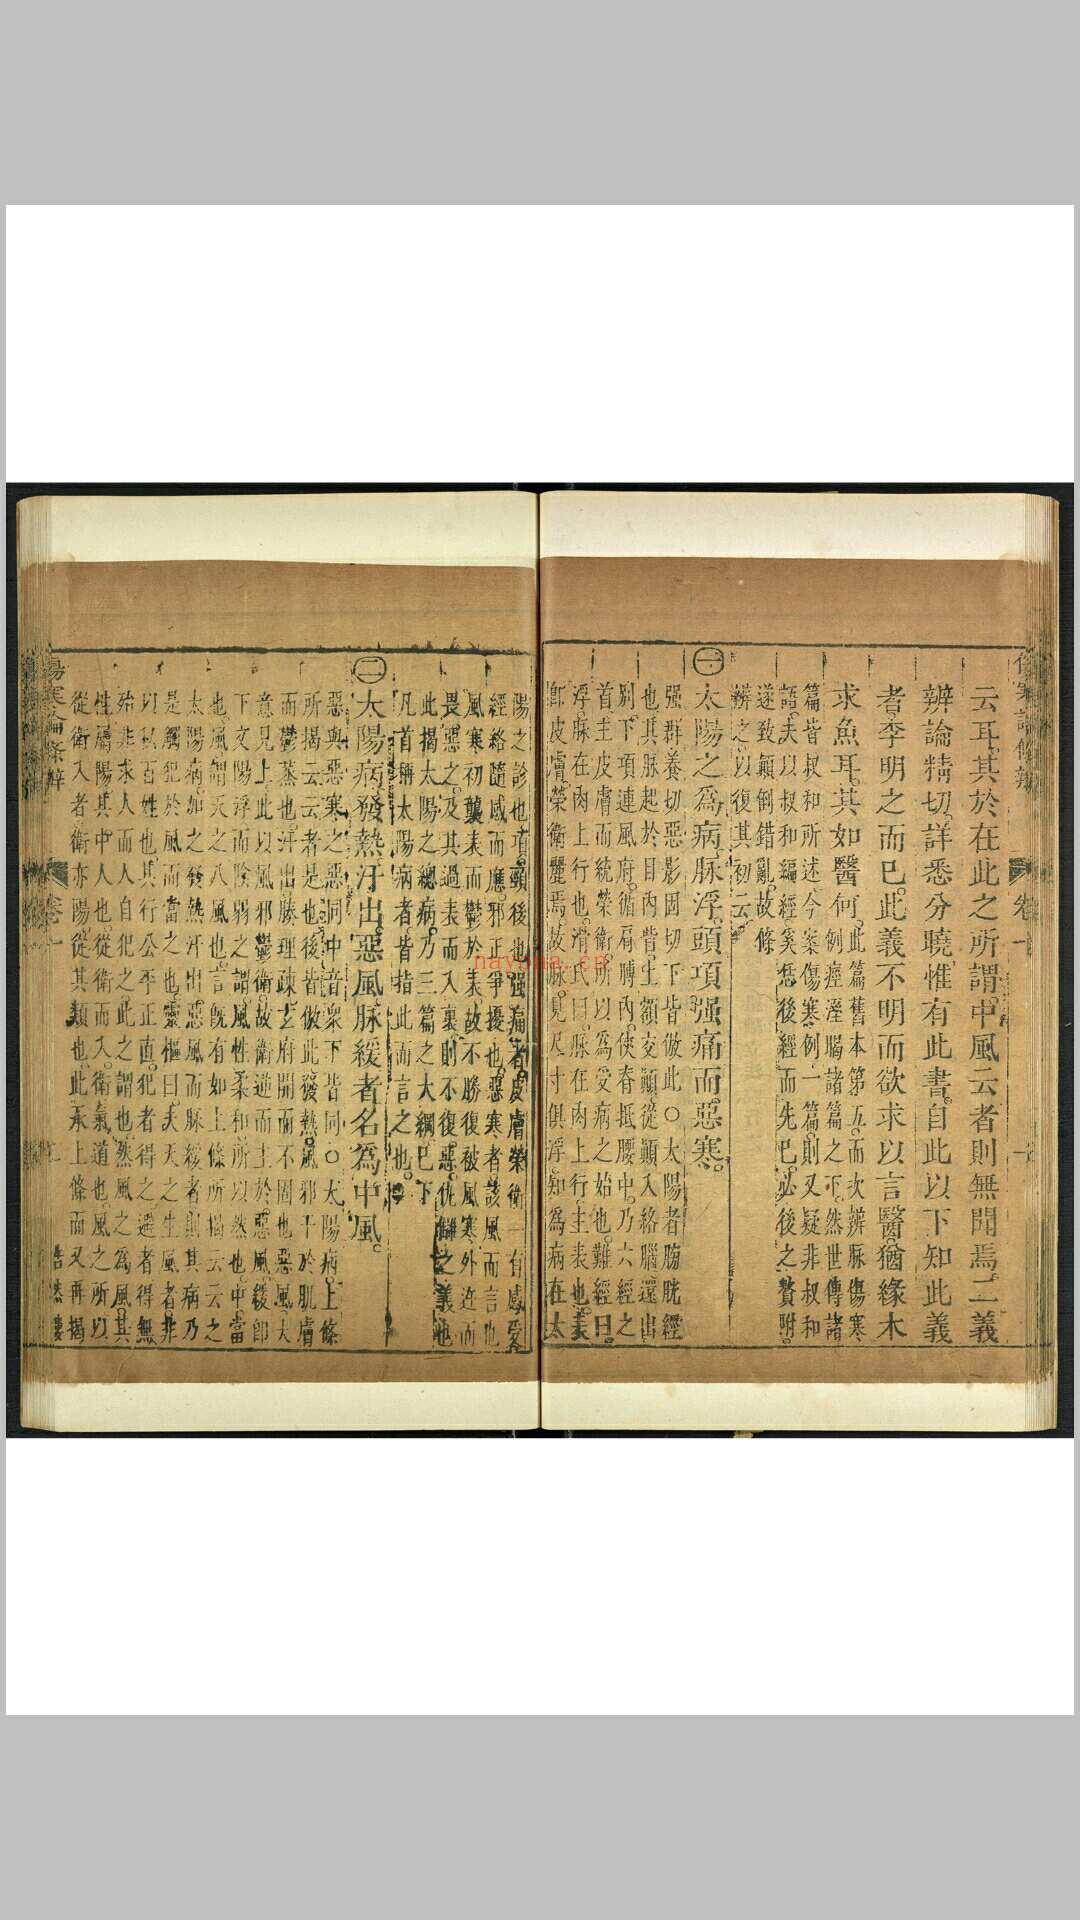 云耳其於在此之所謂中風云者則無聞焉二義
辨論精切詳悉分曉惟有此書自此以下知此義
者李明之而已此義不明而欲求以言醫猶緣木
求魚耳其如醫何此篇舊本第五而次辨脉傷寒
例痙濕暍諸篇之下然世傳諸
篇皆叔和所述今案傷寒例一篇則又疑非叔和
語夫以叔和編經奚恁後經而先已必後之贅附
遂致顛倒錯亂故條
辨之以復其初云
㊀太陽之爲病脉浮頭項强痛而惡寒
强群養切惡影固切下皆倣此○太陽者膀胱經
也其脉起於目內眥上額交巔從巔入絡腦還出
別下項連風府循肩膊內俠脊抵腰中乃六經之
首主皮膚而統榮衛所以為受病之始也難經曰
浮脉在肉上行也滑氏曰脉在肉上行主表也表
即皮膚榮衛麗焉故脉見尺寸俱浮知為病在太
陽之診也項頸後也强痛者皮膚榮衛一有感受
經絡隨感而應邪正爭擾也惡寒者該風而言也
風寒初襲表而鬱於表故不勝復被風寒外迕而
畏惡之及其過表而入裏則不復惡仇讎之義也
此揭太陽之總病乃三篇之大綱已下
凡首稱太陽病者皆指此而言之也
㊁太陽病發熱汗出惡風脉緩者名為中風
惡與惡寒之惡同中音衆下皆同○太陽病上條
所揭云云者是也後皆倣此發熱風邪干於肌膚
而鬱蒸也汗出腠理疎玄府開而不固也惡風大
意見上此以風邪鬱衛故衛逆而主於惡風緩即
下文陽浮而陰弱之謂風性柔和所以然也中當
也風謂天之八風也言旣有如上條所揭云云之
太陽病加之發熱汗出惡風而脉緩者則其病乃
是觸犯於風而當之也靈樞曰夫天之生風者非
以私百姓也其行公平正直犯者得之避者得無
殆非求人而人自犯之此之謂也然風之為風其
性屬陽其中人也從衛而入衛氣道也風之所以
從衛入者衛亦陽從其類也此承上條而又再揭
傷寒論條辨
卷一
浩然樓
傷寒論條辨
卷一
nayona.cn